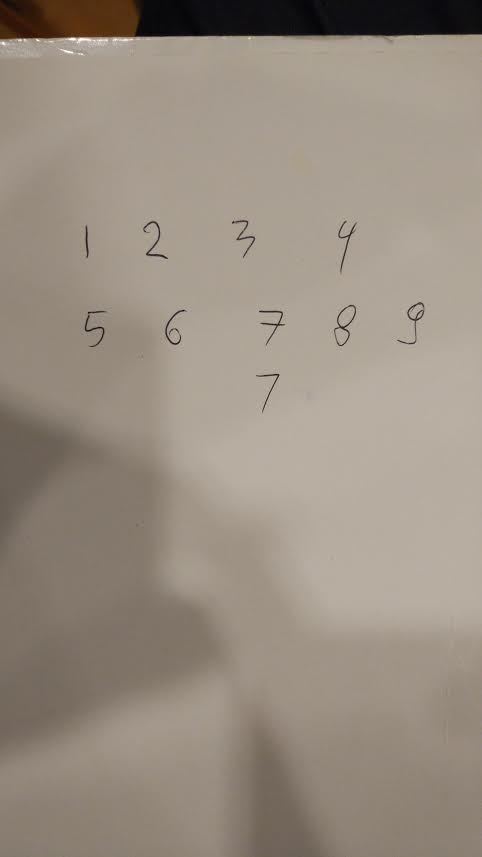 1 2 3 4
5 6 7 8 9
7